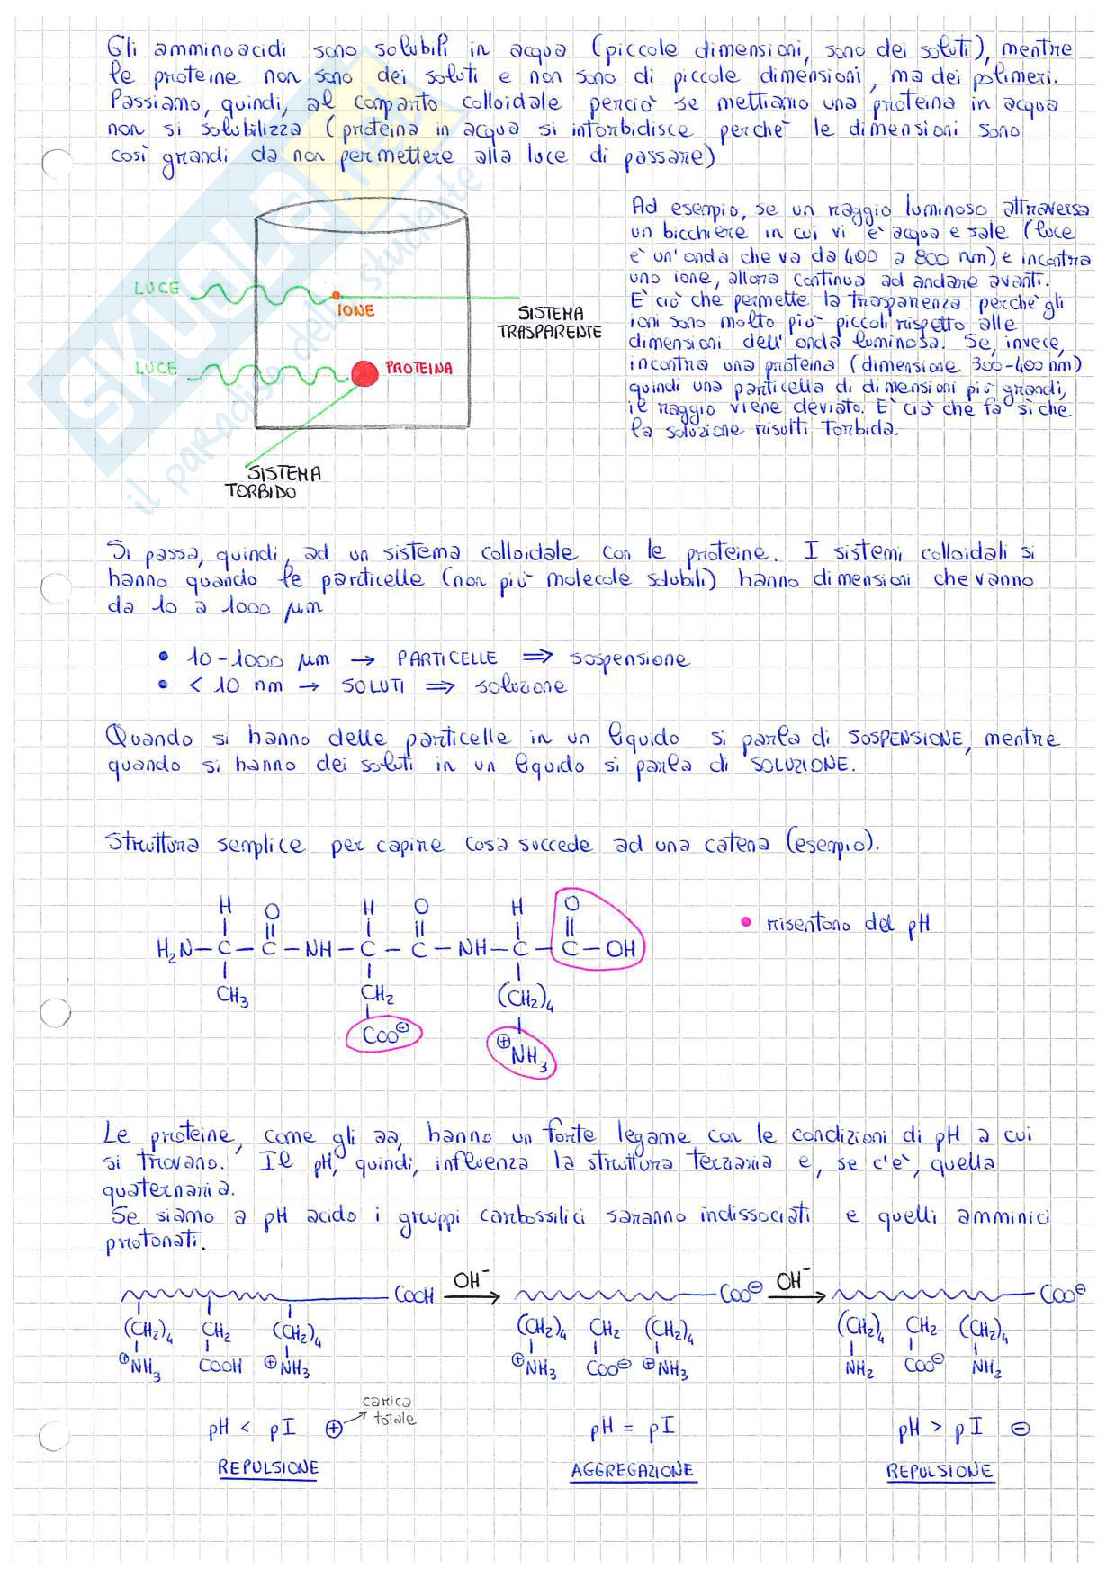 Gli amminoacidi sono solubili in acqua (piccole dimensioni, sono dei soluti), mentre
le proteine non sono dei soluti e non sono di piccole dimensioni, ma dei polimeri.
Passiamo, quindi, al comparto colloidale perciò se mettiamo una proteina in acqua
non si solubilizza (proteina in acqua si intorbidisce perchè le dimensioni sono
così grandi da non permettere alla luce di passare)
Ad esempio, se un raggio luminoso attraversa
un bicchiere in cui vi è acqua e sale (luce
è un'onda che va da 400 a 800 nm) e incontra
uno ione, allora continua ad andare avanti.
E' ciò che permette la trasparenza perchè gli
ioni sono molto più piccoli rispetto alle
dimensioni dell'onda luminosa. Se, invece,
incontra una proteina (dimensione 300-400 nm)
quindi una particella di dimensioni più grandi,
il raggio viene deviato. E' ciò che fa sì che
la soluzione risulti torbida.
LUCE
IONE
SISTEMA
TRASPARENTE
LUCE
PROTEINA
SISTEMA
TORBIDO
SKUOLA.net
il paradiso dello studente
Si passa, quindi, ad un sistema colloidale con le proteine. I sistemi colloidali si
hanno quando le particelle (non più molecole solubili) hanno dimensioni che vanno
da 10 a 1000 μm
• 10-1000 μm → PARTICELLE ⇒ sospensione
• < 10 nm → SOLUTI ⇒ soluzione
Quando si hanno delle particelle in un liquido si parla di SOSPENSIONE, mentre
quando si hanno dei soluti in un liquido si parla di SOLUZIONE.
Struttura semplice per capire cosa succede ad una catena (esempio).
H O H O H O
H₂N-C-C-NH-C-C-NH-C-C-OH
CH₃ CH₂ (CH₂)₄
COO⊖ ⊕NH₃
• risentono del pH
Le proteine, come gli aa, hanno un forte legame con le condizioni di pH a cui
si trovano. Il pH, quindi, influenza la struttura terziaria e, se c'è, quella
quaternaria.
Se siamo a pH acido i gruppi carbossilici saranno indissociati e quelli amminici
protonati.
COOH OH⁻ → COO⊖ OH⁻ → COO⊖
(CH₂)₄ CH₂ (CH₂)₄ (CH₂)₄ CH₂ (CH₂)₄ (CH₂)₄ CH₂ (CH₂)₄
⊕NH₃ COOH ⊕NH₃ ⊕NH₃ COO⊖ ⊕NH₃ NH₂ COO⊖ NH₂
carica
totale
pH < pI ⊕ pH = pI pH > pI ⊖
REPULSIONE AGGREGAZIONE REPULSIONE